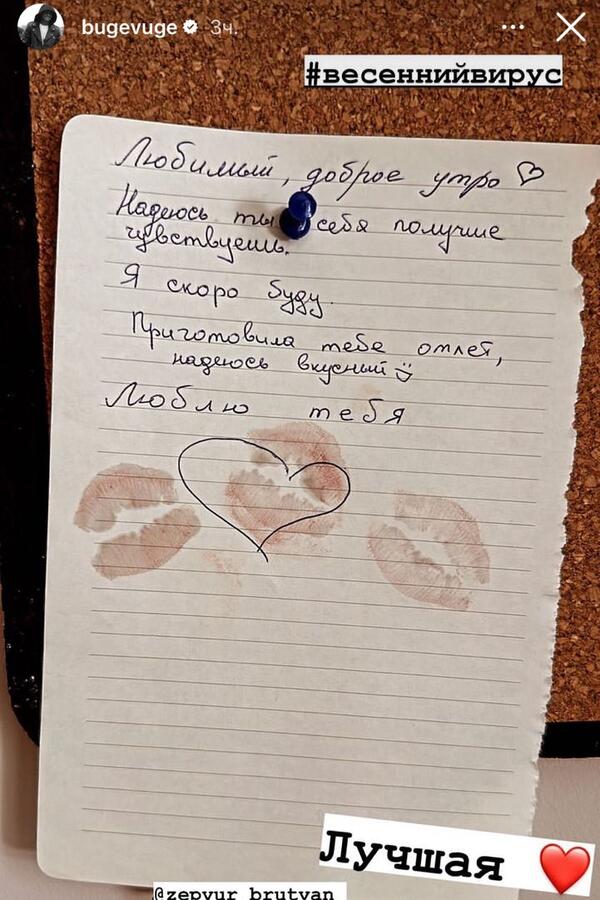 bugevuge 3ч.
#весеннийвирус
Любимый, доброе утро
Надеюсь ты себя получше
чувствуешь.
Я скоро буду.
Приготовила тебе омлет,
надеюсь вкусный
Люблю тебя
Лучшая ❤️
@zepyur_brutyan